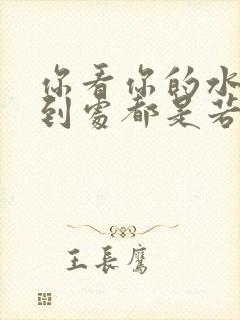 你看你的水
到處都是若
王長鷹